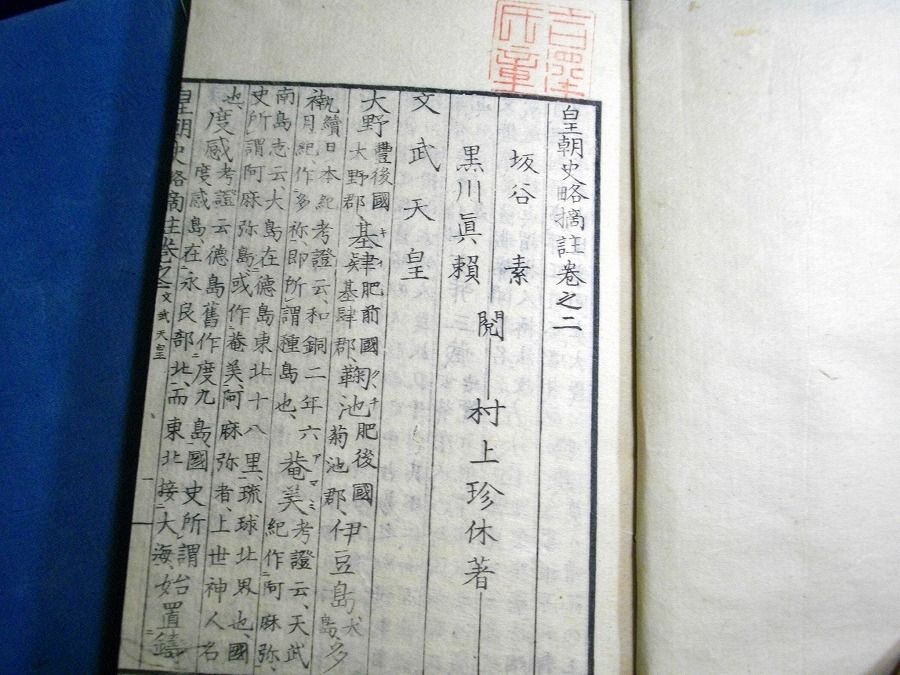 皇朝史略摘註卷之二
坂谷素
黒川眞頼 閲 村上珍休著
文武天皇
大野 豐後國大野郡、基肄 キイ 肥前國基肆郡、鞠池 クヽチ 肥後國菊池郡、伊豆島 大島、多
褹 續日本紀考證云、和銅二年六月紀作多祢、即所謂種島也、菴美 アマミ 考證云、天武紀作阿麻弥、
南島志云、大島在德島東北十八里、琉球北界也、國
史所謂阿麻弥島、或作菴美、阿麻弥者、上世神人名
也、度感 考證云德島舊作度九島、國史所謂
度感島、在永良部北、而東北接大海、始置鑄
皇朝史略摘註卷之二 文武天皇 一